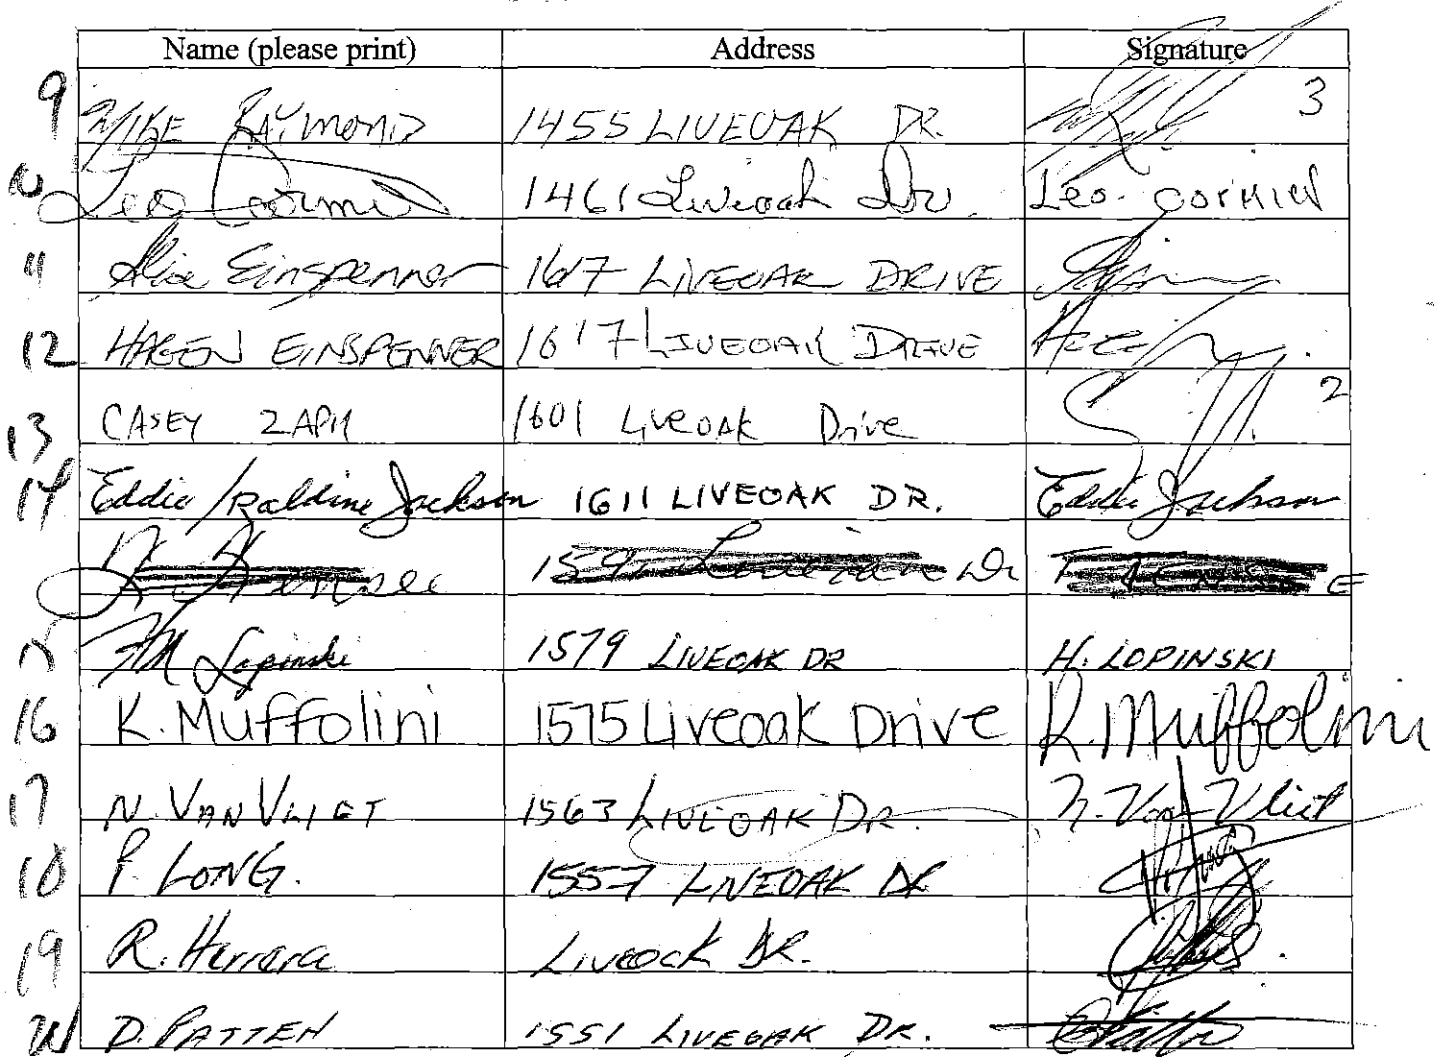 Name (please print) Address Signature
9 MIKE RAYMOND 1455 LIVEOAK DR. 3
10 Leo Cormier 1461 Liveoak Dr. Leo. CORMIER
11 Einspenner 1617 LIVEOAK DRIVE
12 HAGEN EINSPENNER 1617 LIVEOAK DRIVE
13 CASEY 1601 Liveoak Drive 2
14 Eddie / Jackson 1611 LIVEOAK DR. Eddie Jackson
Dr
15 Lopinski 1579 LIVEOAK DR H. LOPINSKI
16 K. Muffolini 1575 Liveoak Drive K. Muffolini
17 N. VAN VLIET 1563 LIVEOAK DR. N. Van Vliet
18 P. LONG. 1557 LIVEOAK DR
19 R. Herrera Liveoak DR.
20 D. PATTEN 1551 LIVEOAK DR.